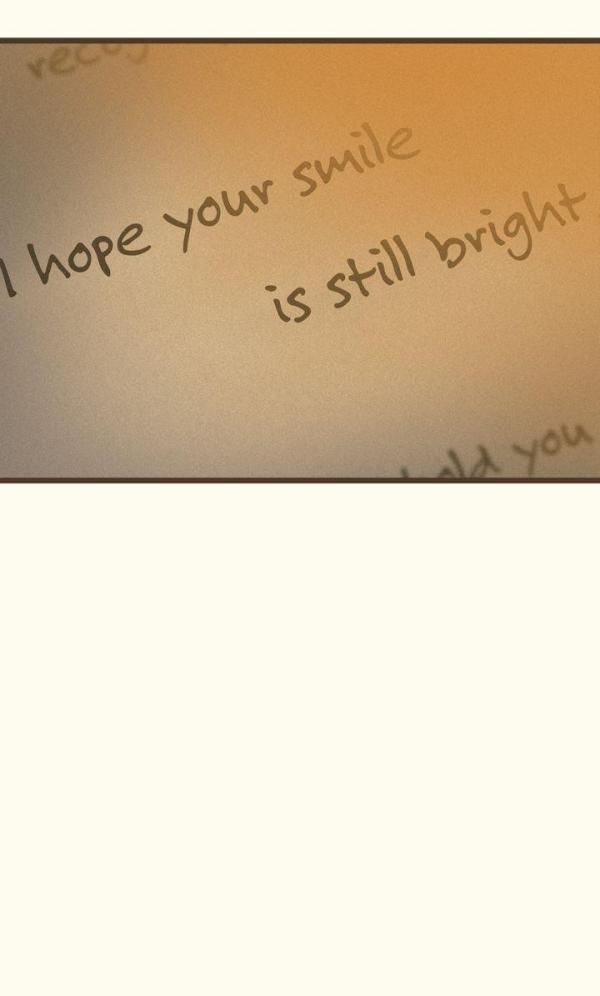 I hope your smile
is still bright
you